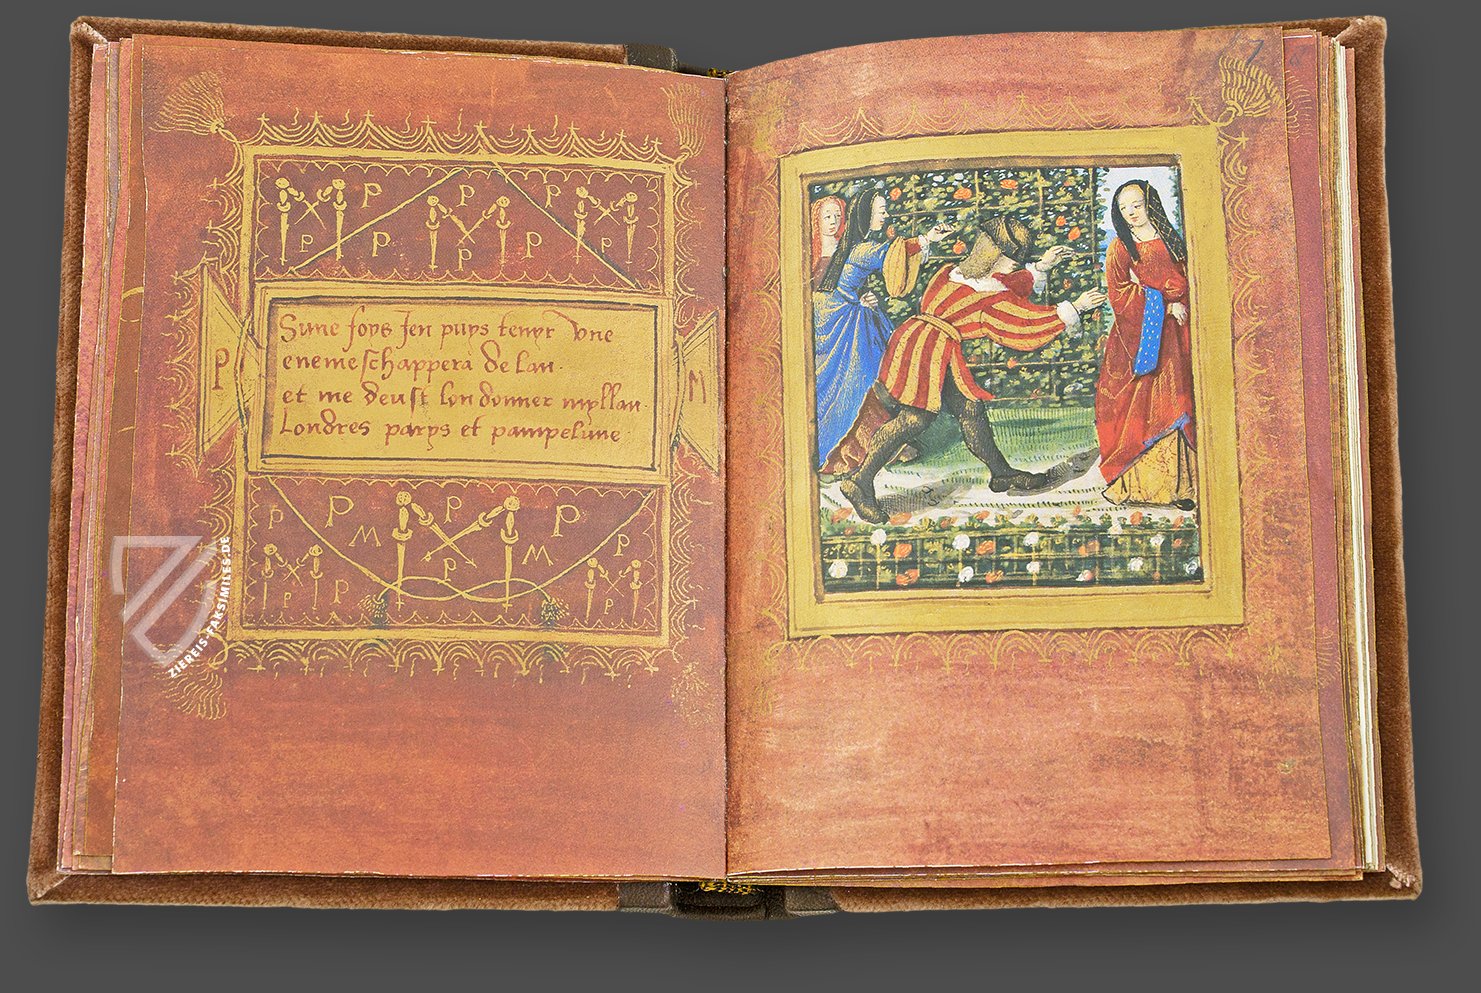 P P P
P P P P
Sune foys Jen puys tenyr Vne
enemeschappera de lan.
et me deust lon donner myllan.
Londres parys et pampelune
P M
P P P
P M M P
P P P P
ZIEREIS-FAKSIMILES.DE